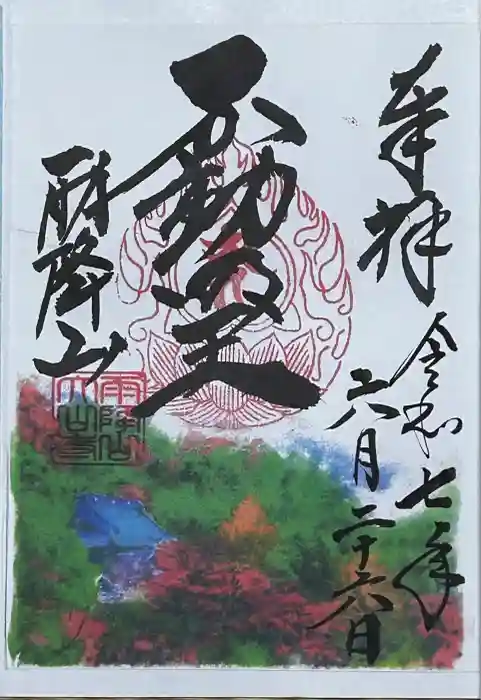 奉拝
令和七年
六月二十六日
不動明王
雨降山
雨降山
大山寺